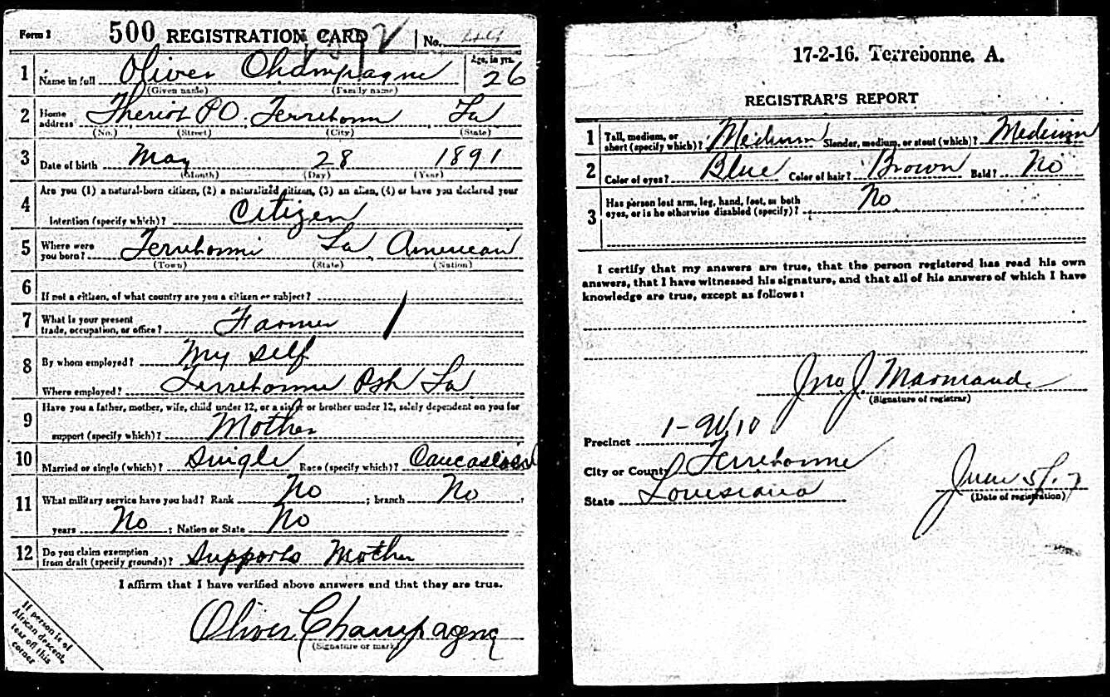 Form 1 500 REGISTRATION CARD No. 44
1 Name in full Oliver Champagne Age, in yrs. 26
(Given name) (Family name)
2 Home address Theriot PO. Terrebonn La
(No.) (Street) (City) (State)
3 Date of birth May 28 1891
(Month) (Day) (Year)
Are you (1) a natural-born citizen, (2) a naturalized citizen, (3) an alien, (4) or have you declared your
4 intention (specify which)? Citizen
5 Where were you born? Terrebonne La American
(Town) (State) (Nation)
6 If not a citizen, of what country are you a citizen or subject?
7 What is your present trade, occupation, or office? Farmer
8 By whom employed? My self
Where employed? Terrebonne Psh La
9 Have you a father, mother, wife, child under 12, or a sister or brother under 12, solely dependent on you for
support (specify which)? Mother
10 Married or single (which)? Single Race (specify which)? Caucasian
11 What military service have you had? Rank No ; branch No ;
years No ; Nation or State No
12 Do you claim exemption from draft (specify grounds)? Supports Mother
I affirm that I have verified above answers and that they are true.
Oliver Champagne
(Signature or mark)
If person is of
African descent,
tear off this
corner
17-2-16. Terrebonne, A.
REGISTRAR'S REPORT
1 Tall, medium, or short (specify which)? Medium Slender, medium, or stout (which)? Medium
2 Color of eyes? Blue Color of hair? Brown Bald? No
3 Has person lost arm, leg, hand, foot, or both
eyes, or is he otherwise disabled (specify)? No
I certify that my answers are true, that the person registered has read his own
answers, that I have witnessed his signature, and that all of his answers of which I have
knowledge are true, except as follows:
Jno J Marmande
(Signature of registrar)
Precinct
City or County Terrebonne
State Louisiana
June 5/17
(Date of registration)